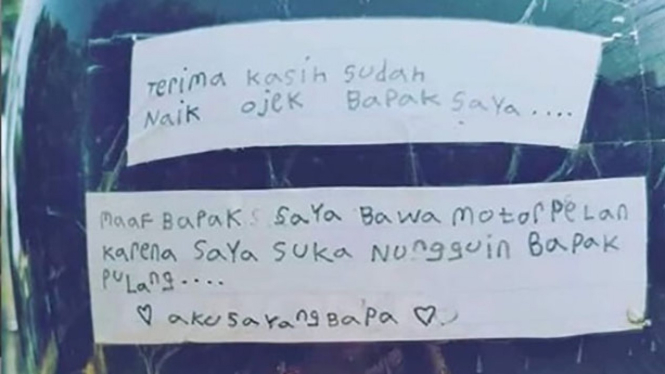 Terima kasih sudah
Naik ojek Bapak saya....
maaf Bapak saya Bawa motor pelan
karena saya suka Nungguin Bapak
pulang....
♡ aku sayang Bapa ♡